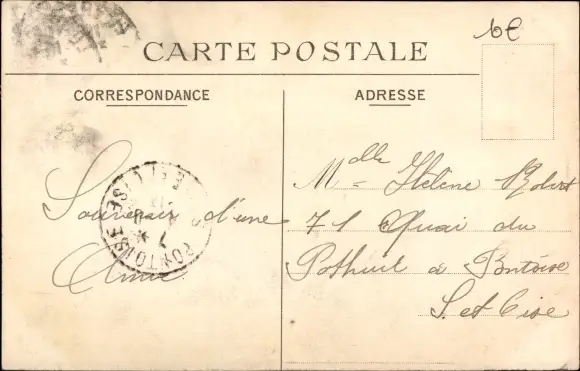 10€
CARTE POSTALE
CORRESPONDANCE
ADRESSE
Souvenir d'une
Amie
Mdlle Hélène Robert
71 Quai du
Pothuis à Pontoise
S. et Oise
PONTOISE